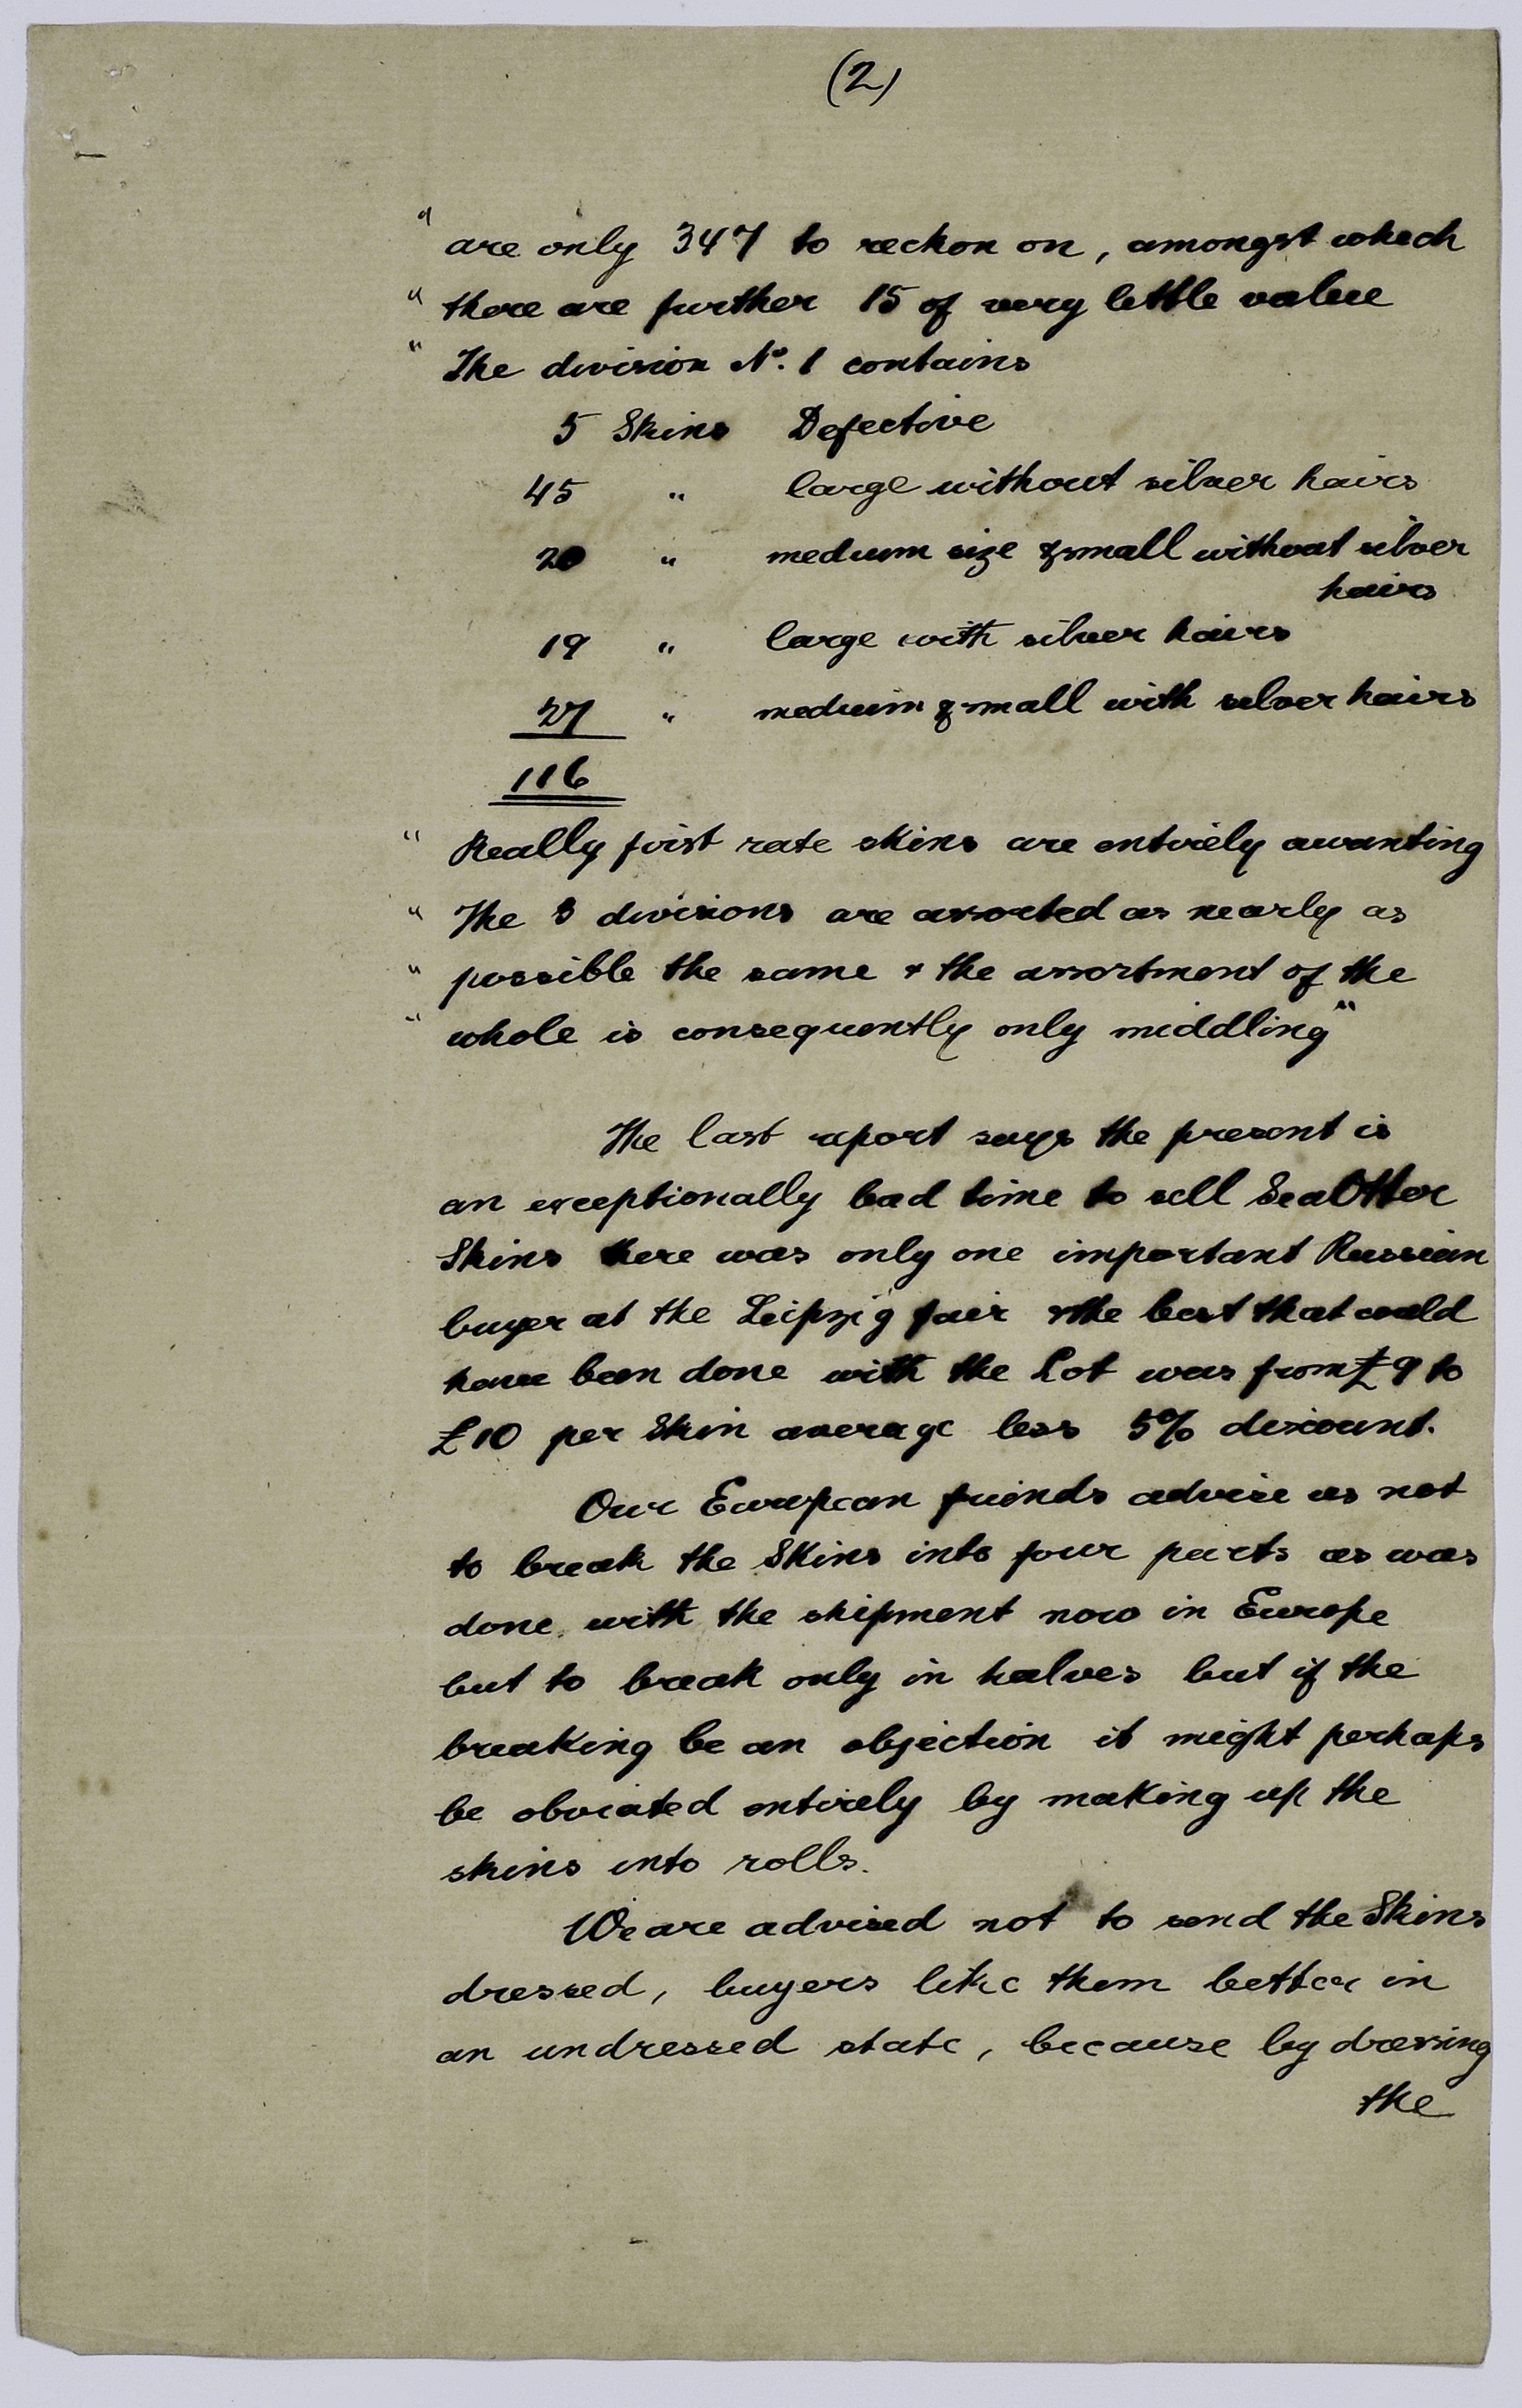 (2)
" are only 347 to reckon on, amongst which
" there are further 15 of very little value
" The division No. 1 contains
5 Skins Defective
45 " large without silver hairs
20 " medium size & small without silver
hairs
19 " large with silver hairs
27 " medium & small with silver hairs
116
" Really first rate skins are entirely awanting
" The 3 divisions are assorted as nearly as
" possible the same & the assortment of the
" whole is consequently only middling"
The last report says the present is
an exceptionally bad time to sell Sea Otter
Skins there was only one important Russian
buyer at the Leipzig fair & the best that could
have been done with the Lot was from £9 to
£10 per Skin average less 5% discount.
Our European friends advise us not
to break the Skins into four parts as was
done with the shipment now in Europe
but to break only in halves but if the
breaking be an objection it might perhaps
be obviated entirely by making up the
skins into rolls.
We are advised not to send the Skins
dressed, buyers like them better in
an undressed state, because by dressing
the